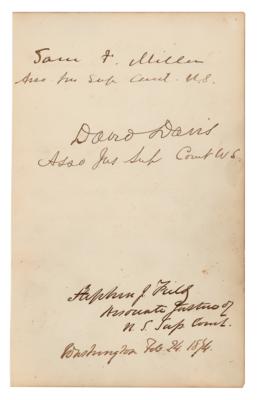 Sam F. Miller
Asso Jus Sup Court. U.S.
David Davis
Asso Jus Sup Court U S.
Stephen J. Field
Associate Justice of
U. S. Sup. Court.
Washington Feb. 24. 1874.